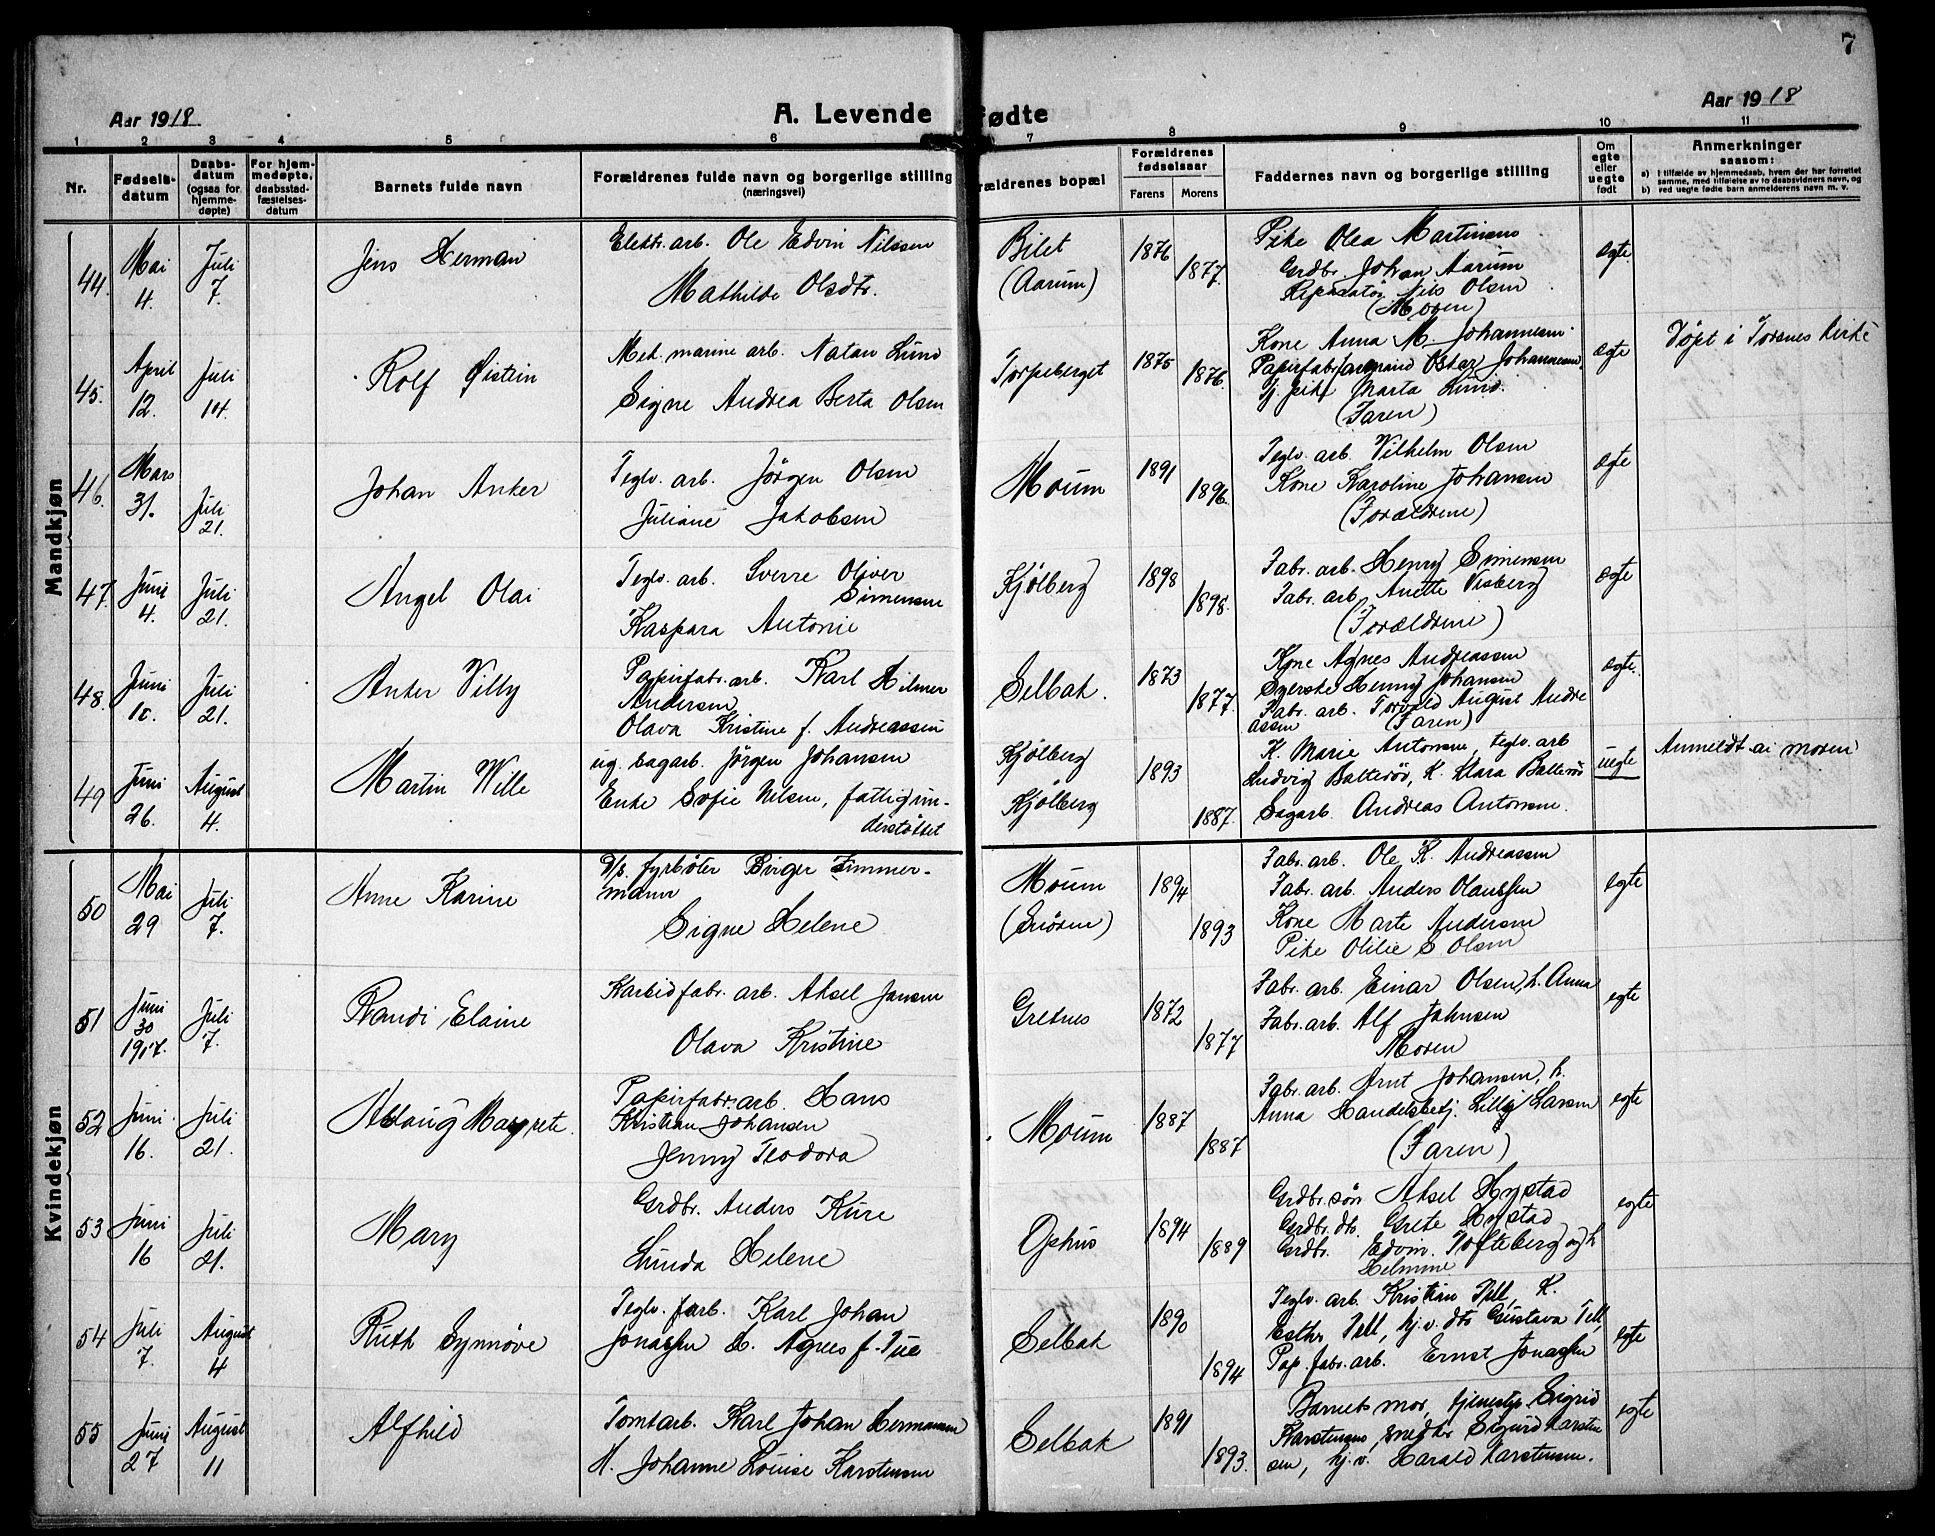 7
Aar 1918
A. Levende fødte
Aar 1918
1 2 3 4 5 6 7 8 9 10 11
Nr.
Fødsels-
datum
Daabs-
datum
(ogsaa for
hjemme-
døpte)
For hjem-
medøpte,
daabsstad-
fæstelses-
datum
Barnets fulde navn
Forældrenes fulde navn og borgerlige stilling
(næringsvei)
rældrenes bopæl
Forældrenes
fødselsaar
Farens Morens
Faddernes navn og borgerlige stilling
Om
egte
eller
uegte
født
Anmerkninger
saasom:
a) I tilfælde av hjemmedaab, hvem der har forrettet
samme, med tilføielse av to daabsvidners navn, og
b) ved uegte fødte barn anmelderens navn m. v.
Mandkjøn
44. Mai 4. Juli 7. Jens Herman
Elektr. arb. Ole Edvin Nilssen
Mathilde Olsdtr.
Bilet
(Aarum)
1876 1877.
Pike Olea Martinsen
Grdbr. Johan Aarum
Reparatør Nils Olsen
(Moren)
egte
45. April 12. Juli 14. Rolf Øistein
Mek. marine arb. Natan Lund
Signe Andrea Berta Olsen
Torpeberget
1875 1876.
Kone Anna M. Johannesen
Papirfabr. Oskar Johannesen
Tj. pike Marta Lund.
(Faren)
egte
Døpt i Torsnes kirke
46. Mars 31. Juli 21. Johan Anker
Teglv. arb. Jörgen Olsen
Juliane Jakobsen
Moum
1891 1896.
Teglv. arb. Vilhelm Olsen
Kone Karoline Johansen
(Forældrene)
egte
47. Juni 4. Juli 21. Angel Olai
Teglv. arb. Sverre Oliver
Simensen
Kaspara Antonie
Kjölberg
1898 1898.
Fabr. arb. Henry Simensen
Fabr. arb. Anette Visberg
(Forældrene)
egte
48. Juni 10. Juli 21. Anker Villy
Papirfabr. arb. Karl Hilmer
Andersen
Olava Kristine f. Andreassen
Selbak.
1873 1877.
Kone Agnes Andreassen
Syerske Henny Johansen
Fabr. arb. Torvald August Andre
assen (Faren)
egte.
49. Juni 26. August 4. Martin Wille
ug. sagarb. Jörgen Johansen
Enke Sofie Nilsen, fattigun-
derstöttet
Kjölberg
Kjölberg
1893 1887.
K. Marie Antonsen, teglv. arb
Ludvig Balteröd, K. Klara Balteröd
Sagarb. Andreas Antonsen.
uegte
Anmeldt av moren
Kvindekjøn
50 Mai 29 Juli 7. Anne Karine
D/s. fyrböter Birger Zimmer-
mann
Signe Helene
Moum
1894 1893
Fabr. arb. Ole K. Andreassen
Fabr. arb. Anders Olaussen
Kone Marte Andersen
Pike Otilie S Olsen
egte
51 Juni 30 1917. Juli 7. Randi Elaine
Karbidfabr. arb. Aksel Jansen
Olava Kristine
Gretnes
1872 1877
Fabr. arb. Einar Olsen, h. Anna
Fabr. arb. Alf Johnsen
Moren
egte
52 Juni 16. Juli 21. Aslaug Margrete.
Papirfabr. arb. Hans
Kristian Johansen
Jenny Teodora
Moum
1887 1887
Fabr. arb. Arnt Johansen, h.
Anna Handelsbetj. Lilly Larsen
(Faren)
egte
53 Juni 16 Juli 21. Mary
Grdbr. Anders Kure
Lunda Helene
Ophus
1894 1889
Grdbr. sön Aksel Hystad
Grdbr. dtr. Grete Hystad
Grdbr. Edvin Tofteberg og h
Helmine
egte
54 Juli 7. August 4 Ruth Synnöve
Teglv. farb. Karl Johan
Jonassen H. Agnes f. Tue
Selbak
1890 1894
Teglv. arb. Kristian Tell, K.
Esther Tell, hj. v. dtr Gustava Tell,
Pap. fabr. arb. Ernst Jonassen
egte
55 Juni 27 August 11 Alfhild
Tomtarb. Karl Johan Hermansen
H. Johanne Louise Karstensen
Selbak
1891 1893.
Barnets mor, tjenestep. Sigrid
Karstensen, snedker Sigurd Karsten
sen, hj. v. Harald Karstensen.
egte